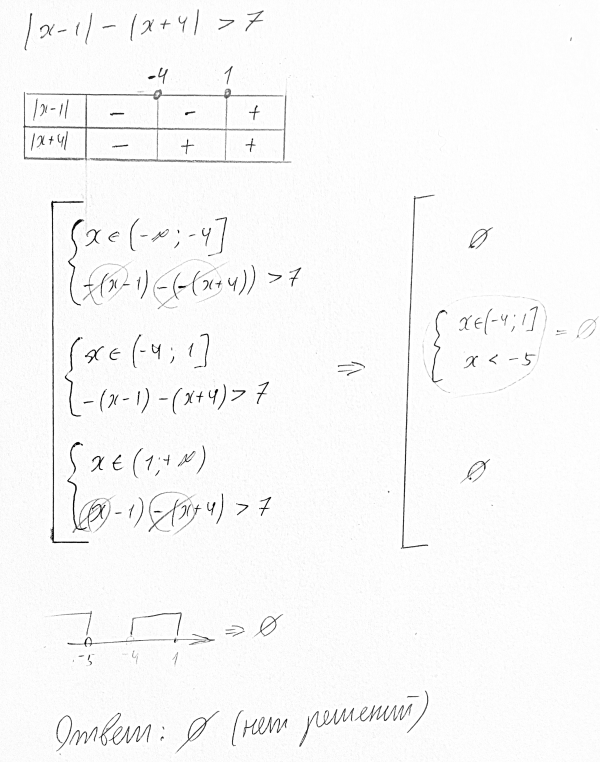 |x-1| - |x+4| > 7
-4 1
|x-1| - - +
|x+4| - + +
x ∈ (-∞; -4]
-(x-1) - (-(x+4)) > 7
x ∈ (-4; 1]
-(x-1) - (x+4) > 7
x ∈ (1; +∞)
(x-1) - (x+4) > 7
⇒
∅
x ∈ (-4; 1]
x < -5
= ∅
∅
-5 -4 1
⇒ ∅
Ответ: ∅ (нет решений)